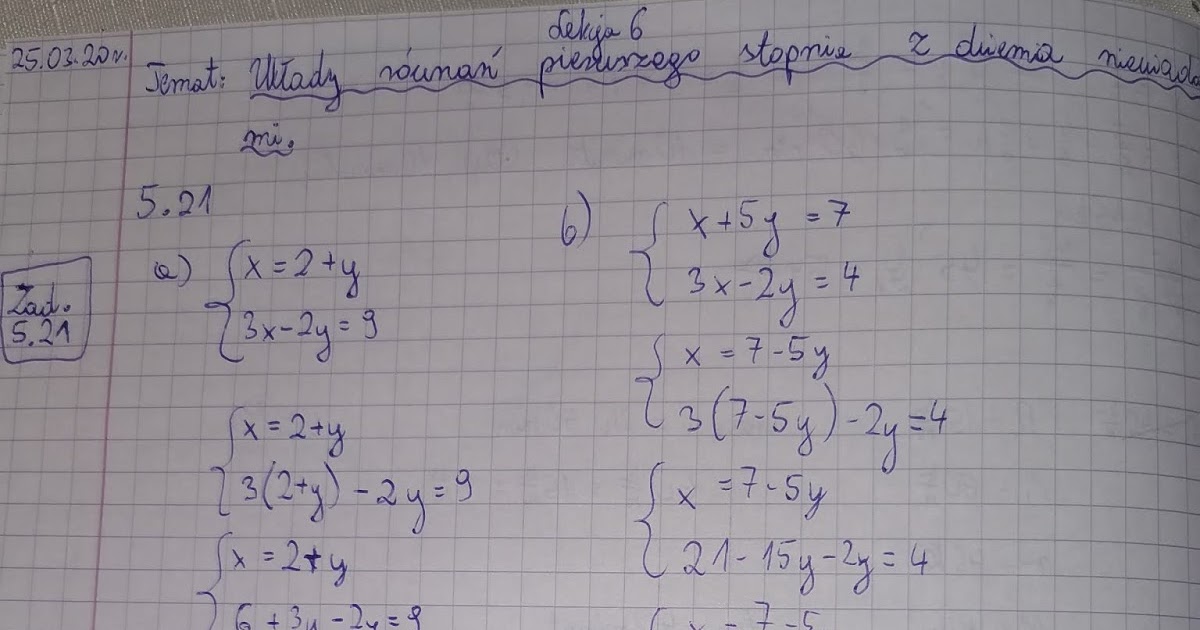 Lekcja 6
25.03.20r.
Temat: Układy równań pierwszego stopnia z dwiema niewiado
mi.
5.21
Zad.
5.21
a) x = 2 + y
3x - 2y = 9
x = 2 + y
3(2+y) - 2y = 9
x = 2 + y
6 + 3y - 2y = 9
b) x + 5y = 7
3x - 2y = 4
x = 7 - 5y
3(7 - 5y) - 2y = 4
x = 7 - 5y
21 - 15y - 2y = 4
x = 7 - 5